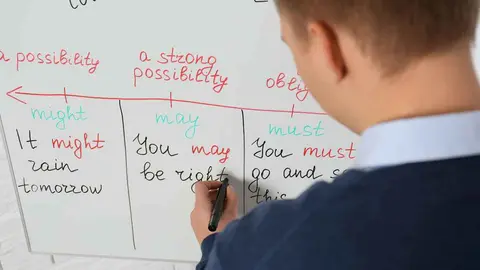 a possibility
a strong
possibility
might
may
must
It might
rain
tomorrow
You may
be right
You must
go and
this